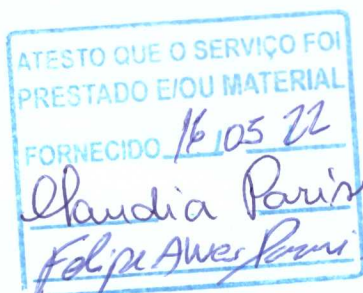 ATESTO QUE O SERVIÇO FOI
PRESTADO E/OU MATERIAL
FORNECIDO 16/05 22
Claudia Paris
Felipe Alves